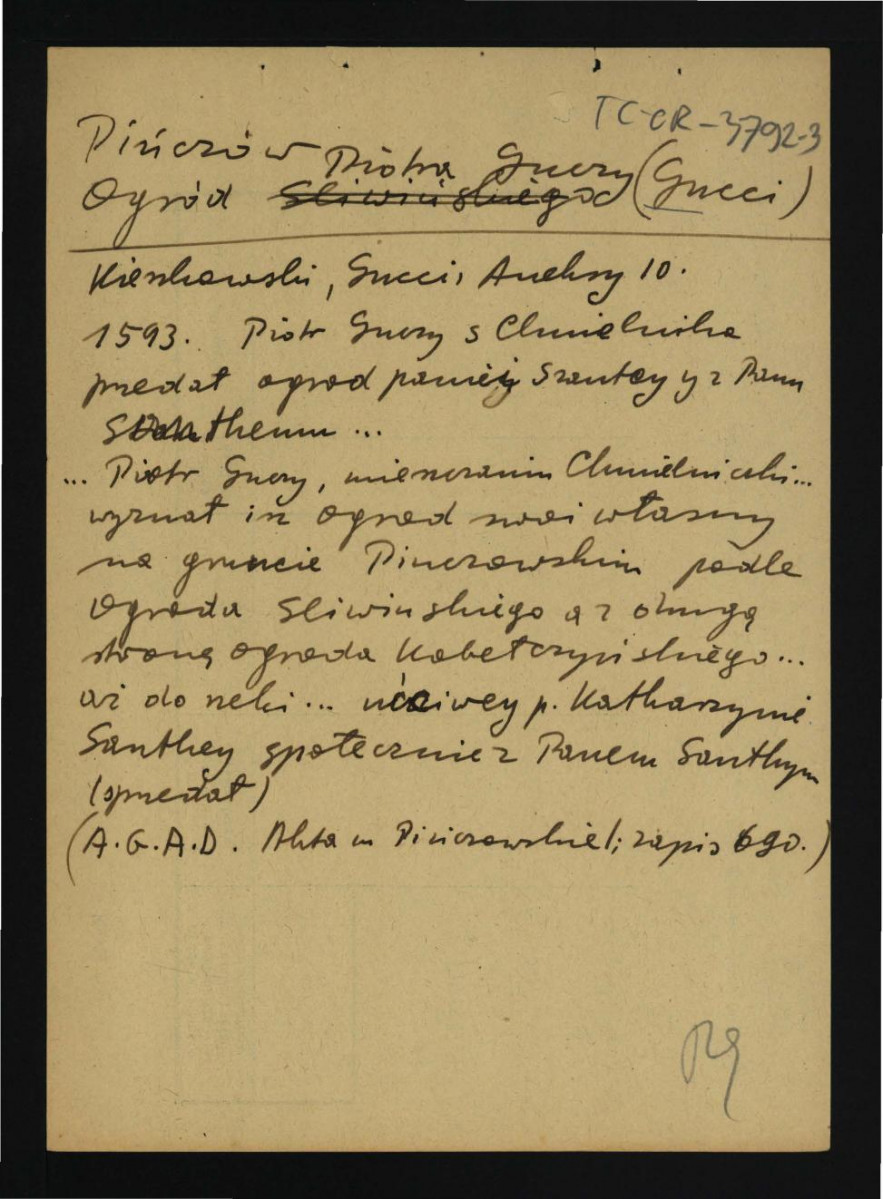 TC-CR-3792-3
Pińczów
Piotra Guczy (Gucci)
Ogród Śliwińskiego
Kieszkowski, Gucci, Aneksy 10.
1593. Piotr Guczy s Chmielnika
przedał ogrod paniej Szantey y z Panu
Santhemu ...
... Piotr Guczy, miesczanin Chmielnicski...
wyznał iż ogrod swoi własny
na gruncie Pinczowskim podle
ogroda Sliwinskiego a z drugą
stroną ogroda Kobełczyńskiego...
aż do rzeki ... uccziwey p. Katharzynie
Santhey społecznie z Panem Santhym
(sprzedał)
(A.G.A.D. Akta m Pińczowskie I; zapis 690.)